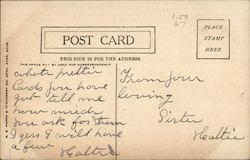 POST CARD
THIS SIDE IS FOR THE ADDRESS
THIS SPACE MAY BE USED FOR CORRESPONDENCE
PLACE
STAMP
HERE
whote pretter
Cards you have
got tell me
how much
you ask for them
I gess I will have
a few
Hattie
From your
loving
Sister
Hattie